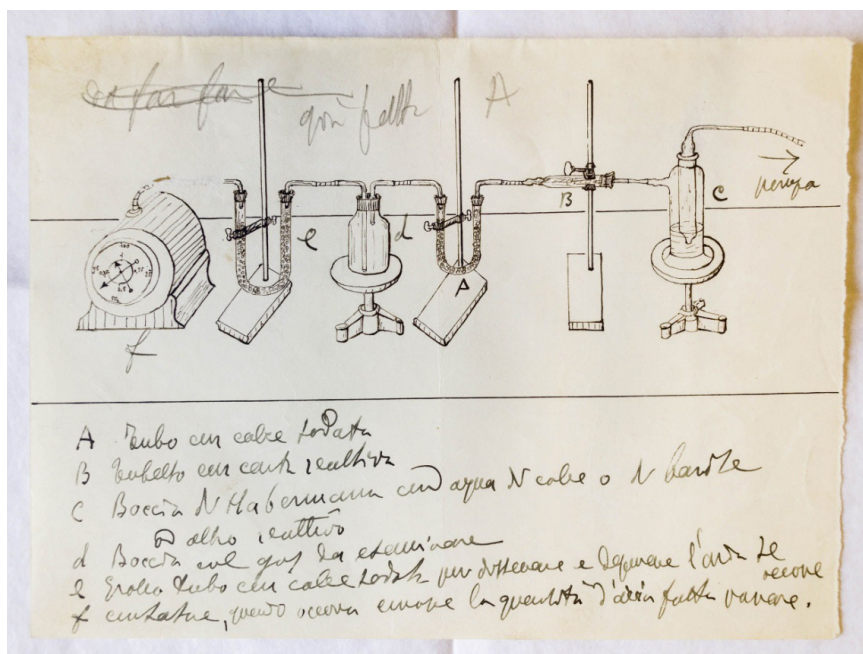 già fatta A
e d B C
pompa
A
f
A Tubo con calce sodata
B Tubetto con carta reattiva
C Boccia di Habermann con acqua di calce o di barite
o altro reattivo
d Boccia col gas da esaminare
e Grosso tubo con calce sodata per disseccare e depurare l'aria se
occorre
f contatore, quando occorra conoscere la quantità d'aria fatta passare.